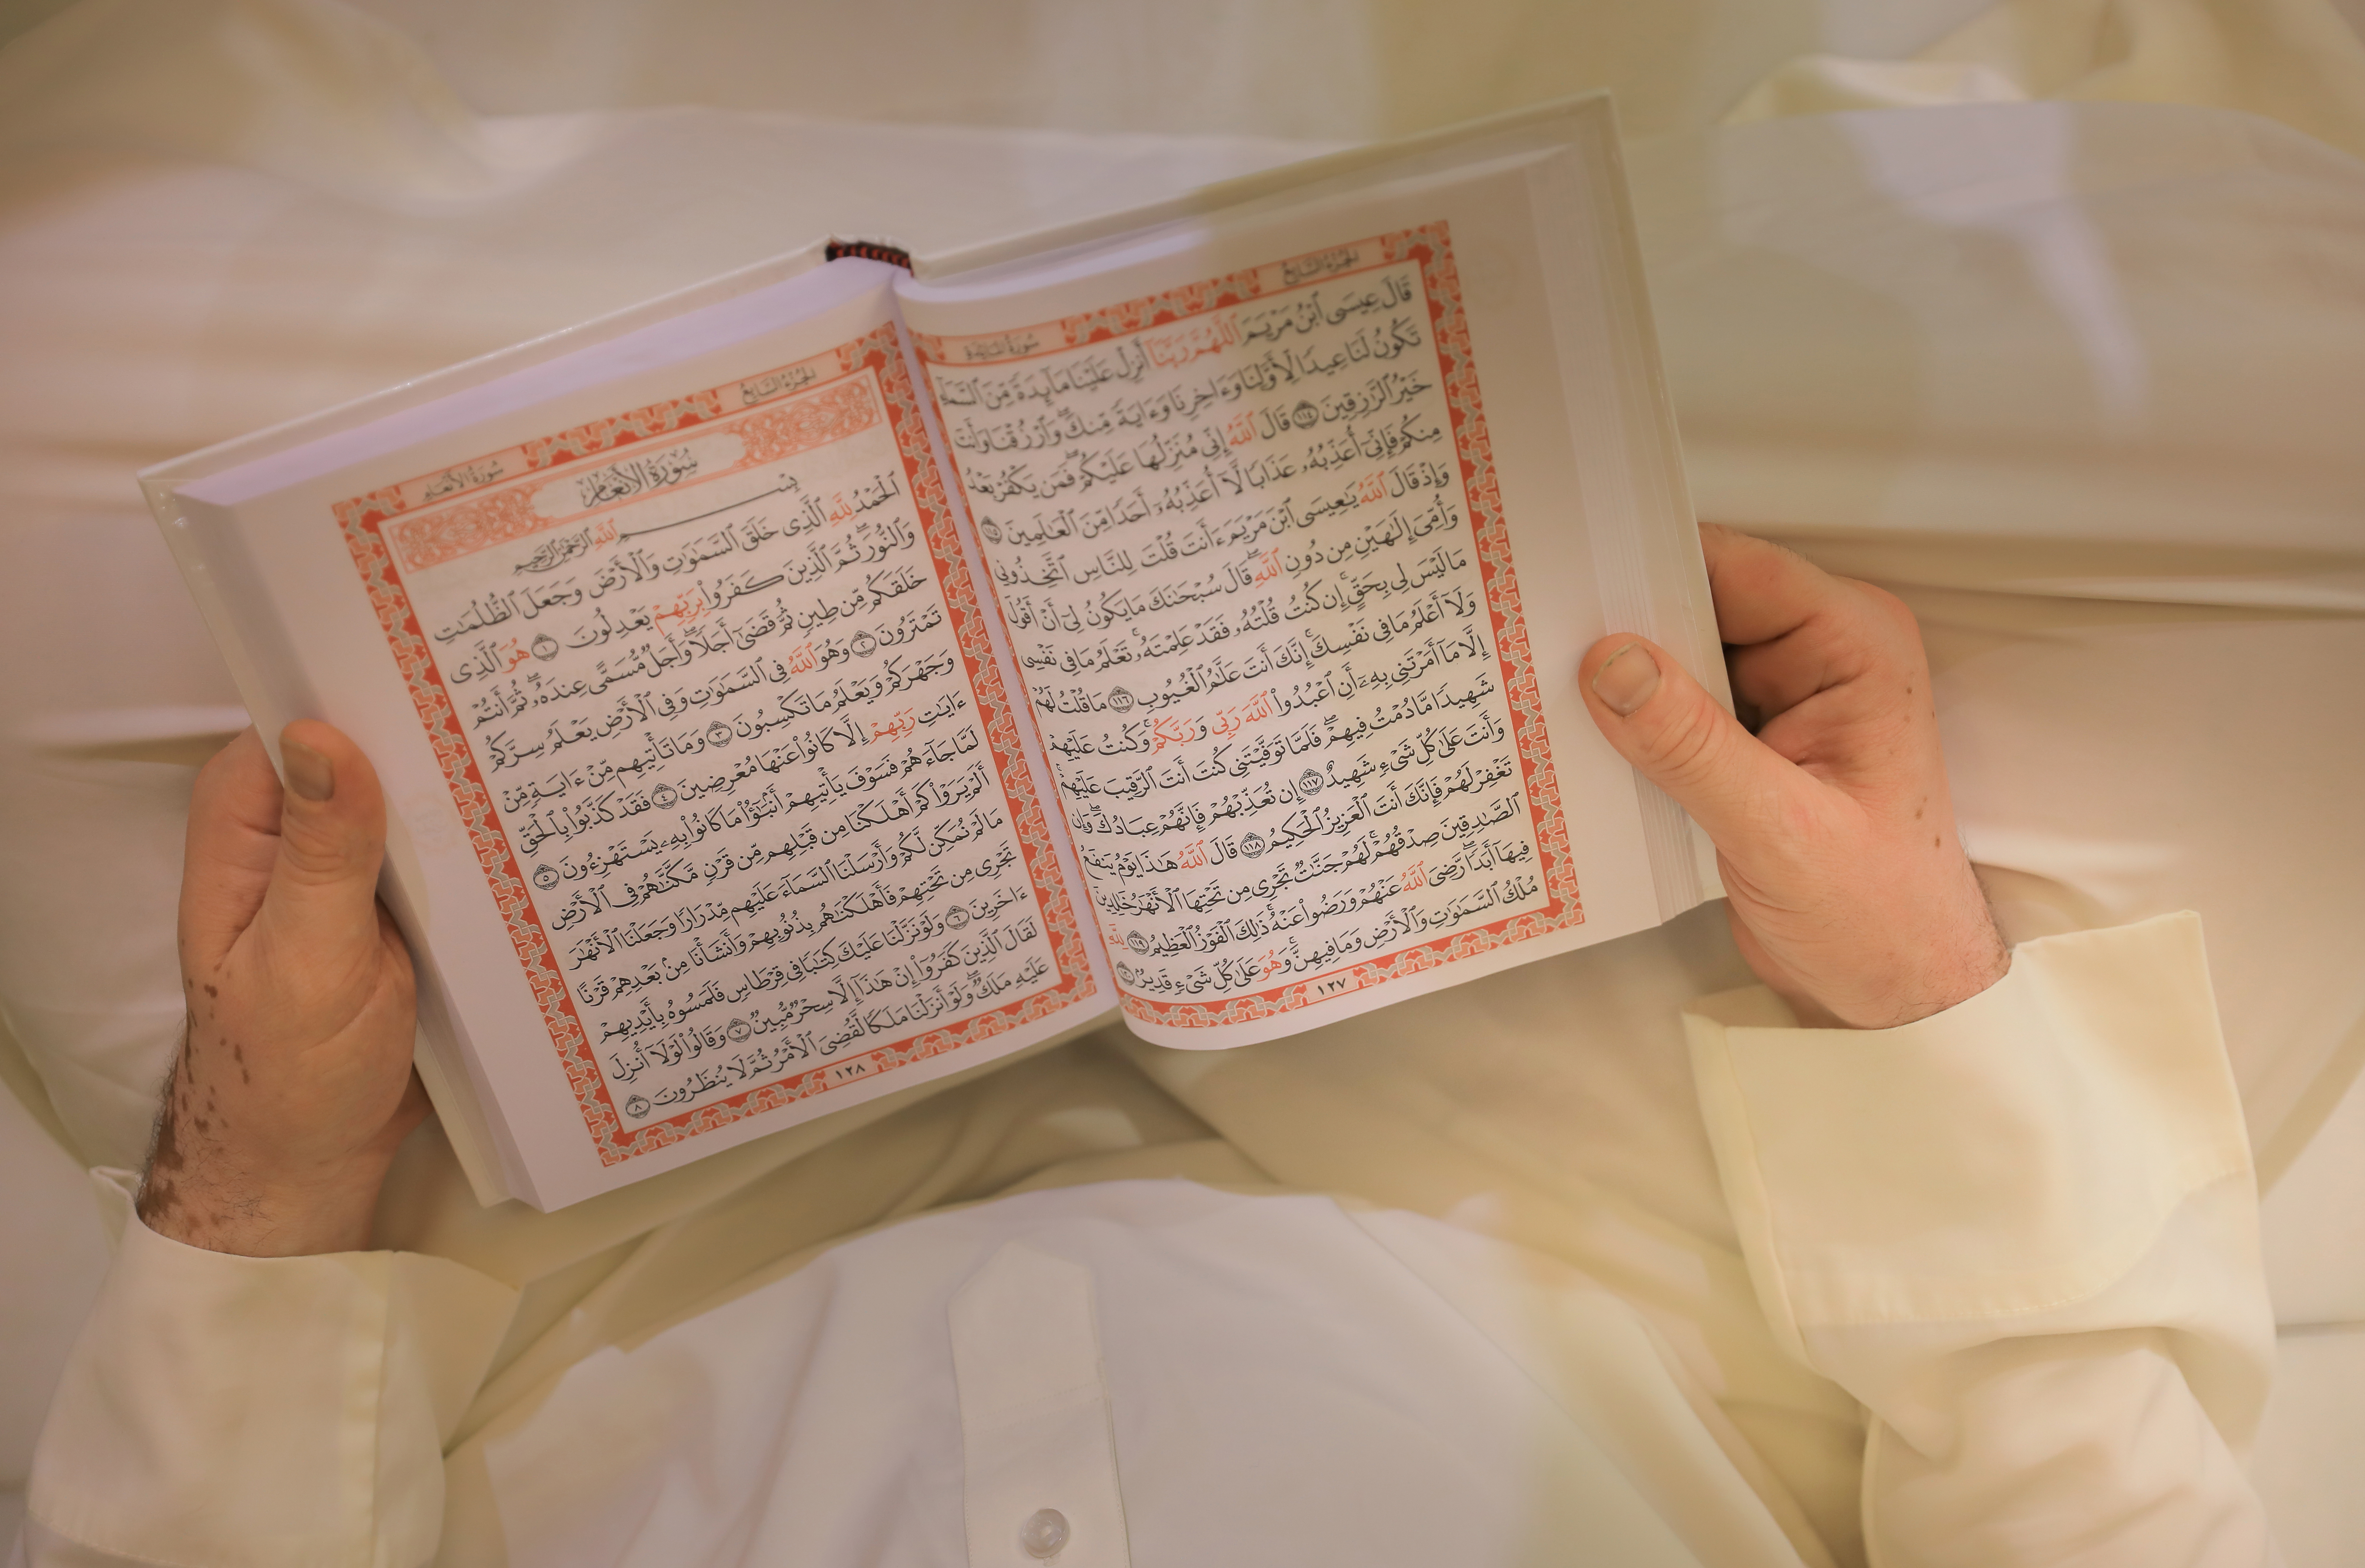 الجزء السابع
سورة المائدة
قَالَ عِيسَى ٱبْنُ مَرْيَمَ ٱللَّهُمَّ رَبَّنَآ أَنزِلْ عَلَيْنَا مَآئِدَةً مِّنَ ٱلسَّمَآءِ
تَكُونُ لَنَا عِيدًا لِّأَوَّلِنَا وَءَاخِرِنَا وَءَايَةً مِّنكَ ۖ وَٱرْزُقْنَا وَأَنتَ
خَيْرُ ٱلرَّٰزِقِينَ ١١٤ قَالَ ٱللَّهُ إِنِّى مُنَزِّلُهَا عَلَيْكُمْ ۖ فَمَن يَكْفُرْ بَعْدُ
مِنكُمْ فَإِنِّىٓ أُعَذِّبُهُۥ عَذَابًا لَّآ أُعَذِّبُهُۥٓ أَحَدًا مِّنَ ٱلْعَٰلَمِينَ ١١٥
وَإِذْ قَالَ ٱللَّهُ يَٰعِيسَى ٱبْنَ مَرْيَمَ ءَأَنتَ قُلْتَ لِلنَّاسِ ٱتَّخِذُونِى
وَأُمِّىَ إِلَٰهَيْنِ مِن دُونِ ٱللَّهِ ۖ قَالَ سُبْحَٰنَكَ مَا يَكُونُ لِىٓ أَنْ أَقُولَ
مَا لَيْسَ لِى بِحَقٍّ ۚ إِن كُنتُ قُلْتُهُۥ فَقَدْ عَلِمْتَهُۥ ۚ تَعْلَمُ مَا فِى نَفْسِى
وَلَآ أَعْلَمُ مَا فِى نَفْسِكَ ۚ إِنَّكَ أَنتَ عَلَّٰمُ ٱلْغُيُوبِ ١١٦ مَا قُلْتُ لَهُمْ
إِلَّا مَآ أَمَرْتَنِى بِهِۦٓ أَنِ ٱعْبُدُوا۟ ٱللَّهَ رَبِّى وَرَبَّكُمْ ۚ وَكُنتُ عَلَيْهِمْ
شَهِيدًا مَّا دُمْتُ فِيهِمْ ۖ فَلَمَّا تَوَفَّيْتَنِى كُنتَ أَنتَ ٱلرَّقِيبَ عَلَيْهِمْ ۚ
وَأَنتَ عَلَىٰ كُلِّ شَىْءٍ شَهِيدٌ ١١٧ إِن تُعَذِّبْهُمْ فَإِنَّهُمْ عِبَادُكَ ۖ وَإِن
تَغْفِرْ لَهُمْ فَإِنَّكَ أَنتَ ٱلْعَزِيزُ ٱلْحَكِيمُ ١١٨ قَالَ ٱللَّهُ هَٰذَا يَوْمُ يَنفَعُ
ٱلصَّٰدِقِينَ صِدْقُهُمْ ۚ لَهُمْ جَنَّٰتٌ تَجْرِى مِن تَحْتِهَا ٱلْأَنْهَٰرُ خَٰلِدِينَ
فِيهَآ أَبَدًا ۚ رَّضِىَ ٱللَّهُ عَنْهُمْ وَرَضُوا۟ عَنْهُ ۚ ذَٰلِكَ ٱلْفَوْزُ ٱلْعَظِيمُ ١١٩ لِلَّهِ
مُلْكُ ٱلسَّمَٰوَٰتِ وَٱلْأَرْضِ وَمَا فِيهِنَّ ۚ وَهُوَ عَلَىٰ كُلِّ شَىْءٍ قَدِيرٌۢ ١٢٠
١٢٧
الجزء السابع
سورة الأنعام
سُورَةُ الأَنْعَامِ
بِسْمِ ٱللَّهِ ٱلرَّحْمَٰنِ ٱلرَّحِيمِ
ٱلْحَمْدُ لِلَّهِ ٱلَّذِى خَلَقَ ٱلسَّمَٰوَٰتِ وَٱلْأَرْضَ وَجَعَلَ ٱلظُّلُمَٰتِ
وَٱلنُّورَ ۖ ثُمَّ ٱلَّذِينَ كَفَرُوا۟ بِرَبِّهِمْ يَعْدِلُونَ ١ هُوَ ٱلَّذِى
خَلَقَكُم مِّن طِينٍ ثُمَّ قَضَىٰٓ أَجَلًا ۖ وَأَجَلٌ مُّسَمًّى عِندَهُۥ ۖ ثُمَّ أَنتُمْ
تَمْتَرُونَ ٢ وَهُوَ ٱللَّهُ فِى ٱلسَّمَٰوَٰتِ وَفِى ٱلْأَرْضِ ۖ يَعْلَمُ سِرَّكُمْ
وَجَهْرَكُمْ وَيَعْلَمُ مَا تَكْسِبُونَ ٣ وَمَا تَأْتِيهِم مِّنْ ءَايَةٍ مِّنْ
ءَايَٰتِ رَبِّهِمْ إِلَّا كَانُوا۟ عَنْهَا مُعْرِضِينَ ٤ فَقَدْ كَذَّبُوا۟ بِٱلْحَقِّ
لَمَّا جَآءَهُمْ ۖ فَسَوْفَ يَأْتِيهِمْ أَنۢبَٰٓؤُا۟ مَا كَانُوا۟ بِهِۦ يَسْتَهْزِءُونَ ٥
أَلَمْ يَرَوْا۟ كَمْ أَهْلَكْنَا مِن قَبْلِهِم مِّن قَرْنٍ مَّكَّنَّٰهُمْ فِى ٱلْأَرْضِ
مَا لَمْ نُمَكِّن لَّكُمْ وَأَرْسَلْنَا ٱلسَّمَآءَ عَلَيْهِم مِّدْرَارًا وَجَعَلْنَا ٱلْأَنْهَٰرَ
تَجْرِى مِن تَحْتِهِمْ فَأَهْلَكْنَٰهُم بِذُنُوبِهِمْ وَأَنشَأْنَا مِنۢ بَعْدِهِمْ قَرْنًا
ءَاخَرِينَ ٦ وَلَوْ نَزَّلْنَا عَلَيْكَ كِتَٰبًا فِى قِرْطَاسٍ فَلَمَسُوهُ بِأَيْدِيهِمْ
لَقَالَ ٱلَّذِينَ كَفَرُوٓا۟ إِنْ هَٰذَآ إِلَّا سِحْرٌ مُّبِينٌ ٧ وَقَالُوا۟ لَوْلَآ أُنزِلَ
عَلَيْهِ مَلَكٌ ۖ وَلَوْ أَنزَلْنَا مَلَكًا لَّقُضِىَ ٱلْأَمْرُ ثُمَّ لَا يُنظَرُونَ ٨
١٢٨